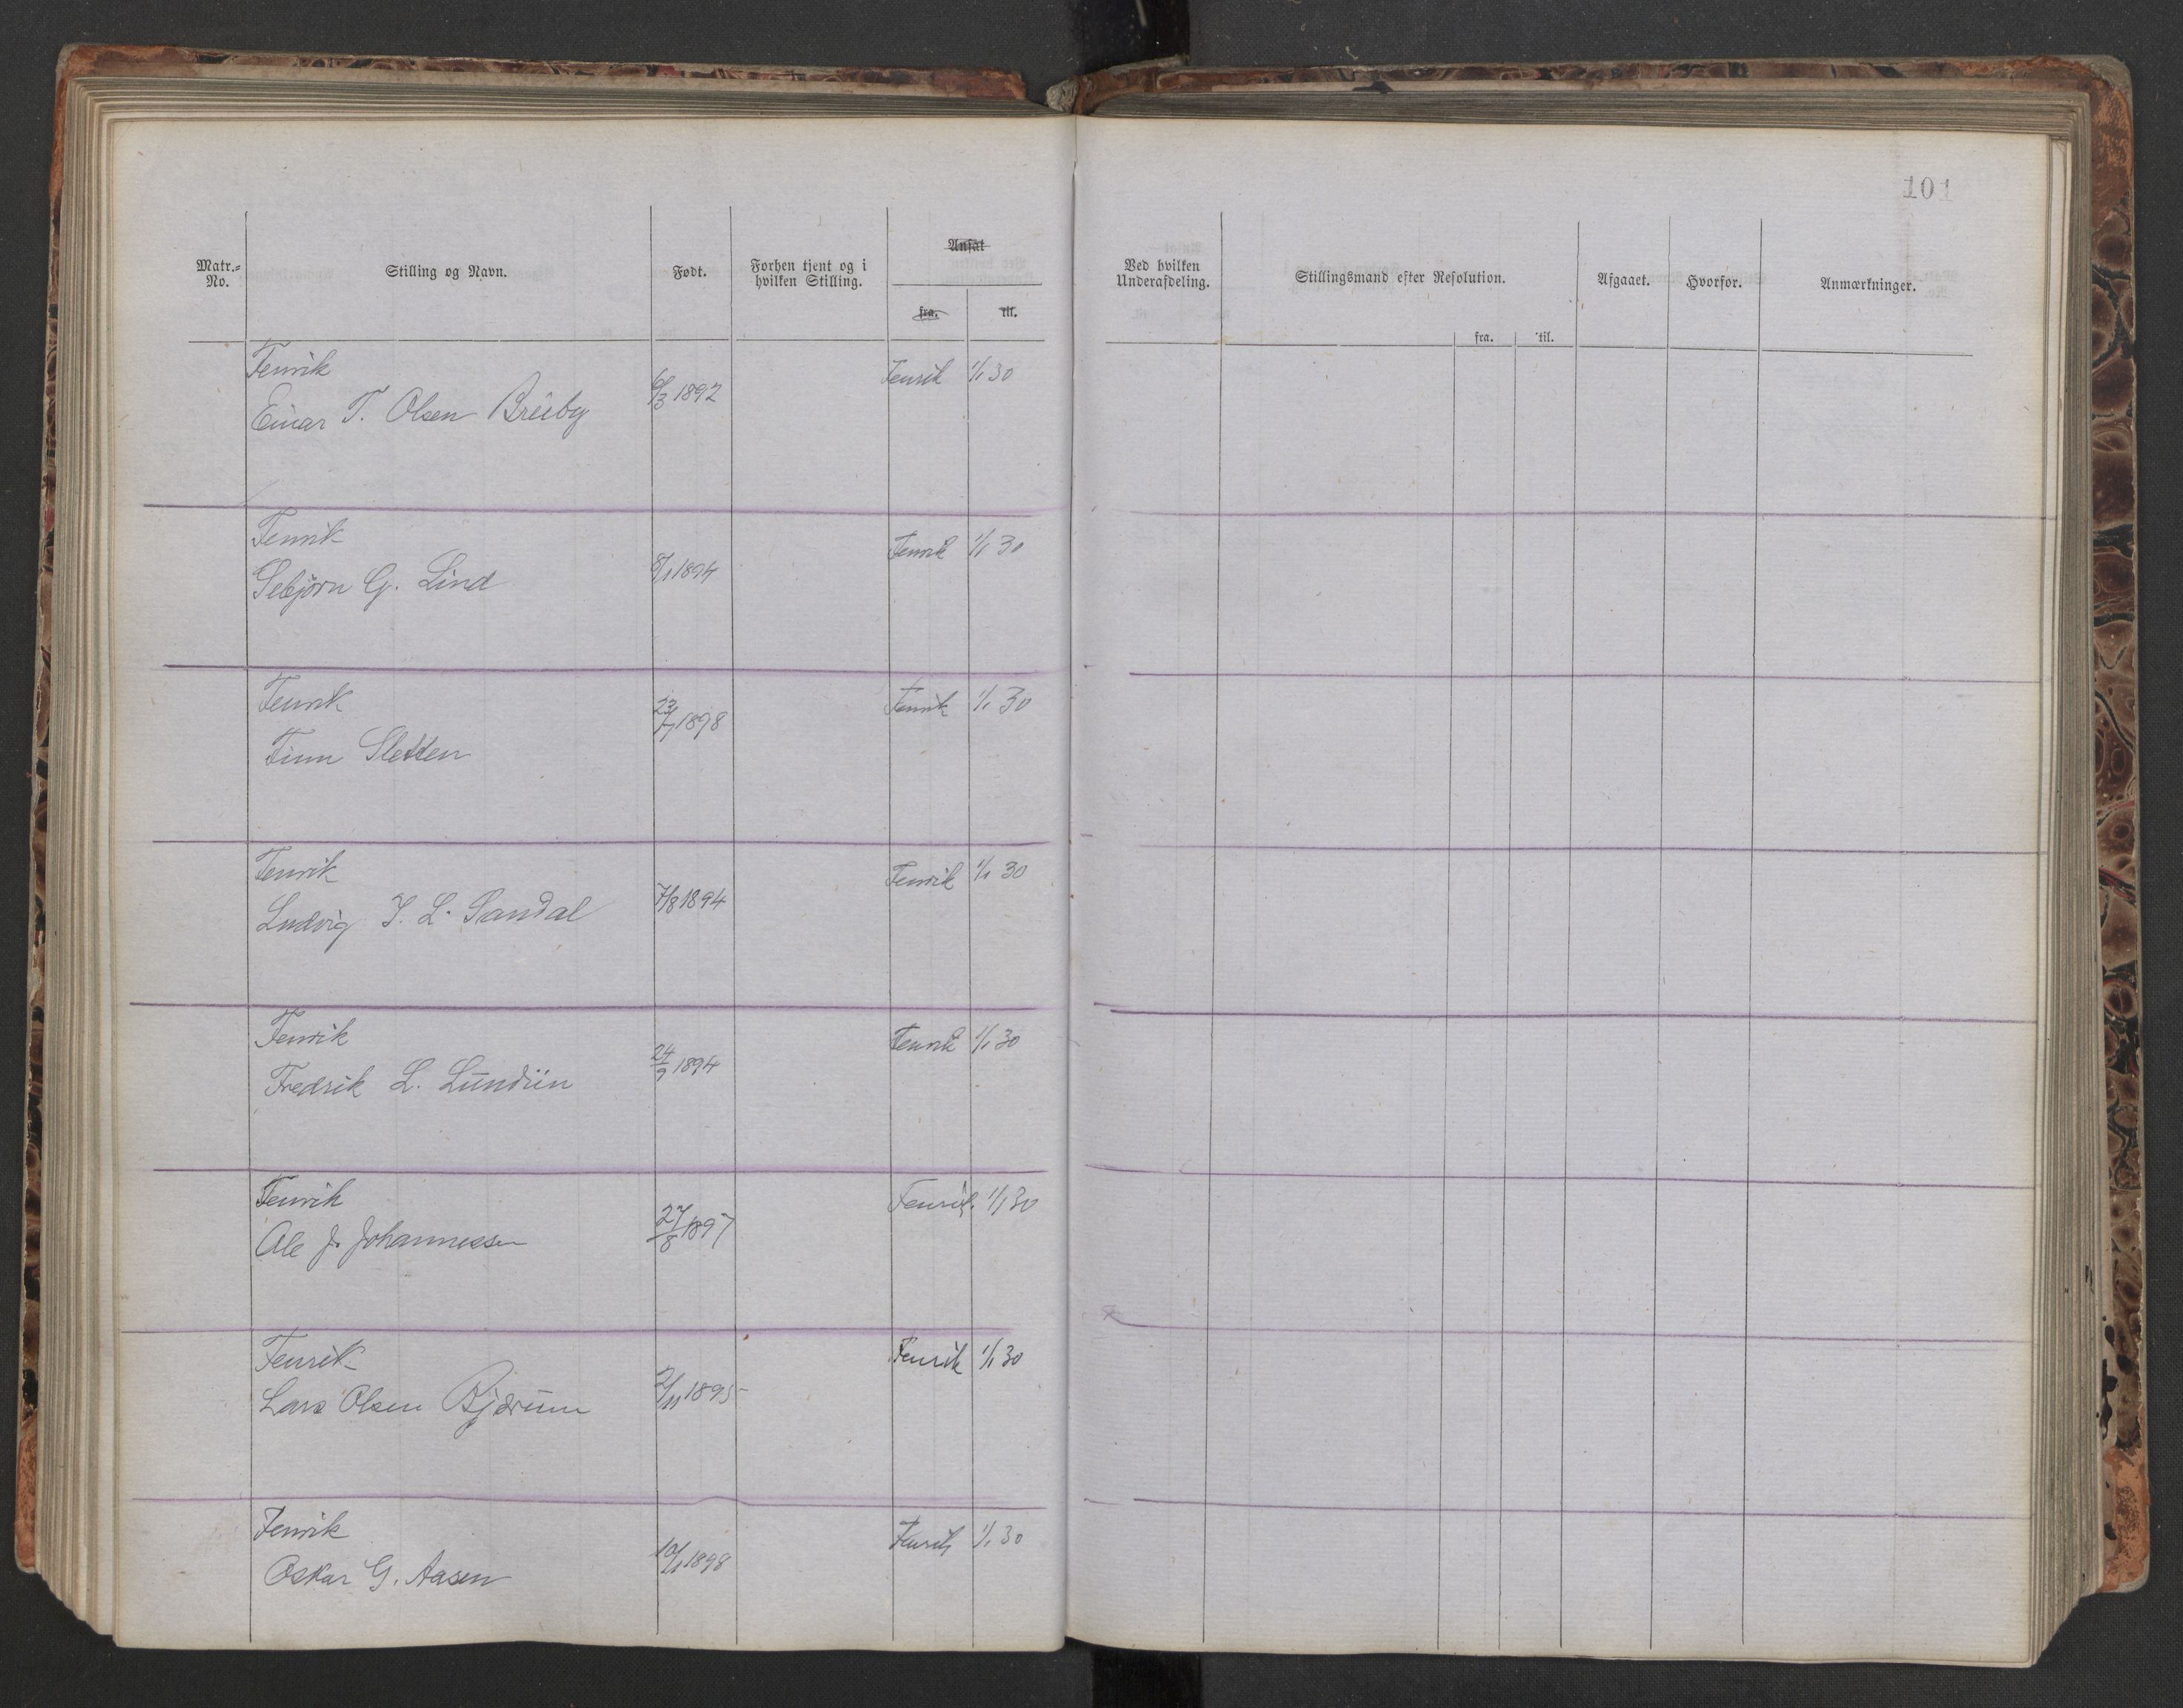 101
Matr.-No.
Stilling og Navn.
Født.
Forhen tjent og i hvilken Stilling.
Ansat
fra.
til.
Ved hvilken Underafdeling.
Stillingsmand efter Resolution.
fra.
til.
Afgaaet.
Hvorfor.
Anmærkninger.
Fenrik
Einar T. Olsen Breiby 6/3 1892 Fenrik 1/1 30
Fenrik
G. Lind 8/1 1894 Fenrik 1/1 30
Fenrik
Finn Sletten 23/7 1898 Fenrik 1/1 30
Fenrik
Ludvig L. Sandal 7/8 1894 Fenrik 1/1 30
Fenrik
Fredrik L. 24/9 1894 Fenrik 1/1 30
Fenrik
Ole J. Johannessen 27/8 1897 Fenrik 1/1 30
Fenrik
Lars Olsen Bjørum 2/11 1895 Fenrik 1/1 30
Fenrik
Oskar G. Aasen 10/1 1898 Fenrik 1/1 30